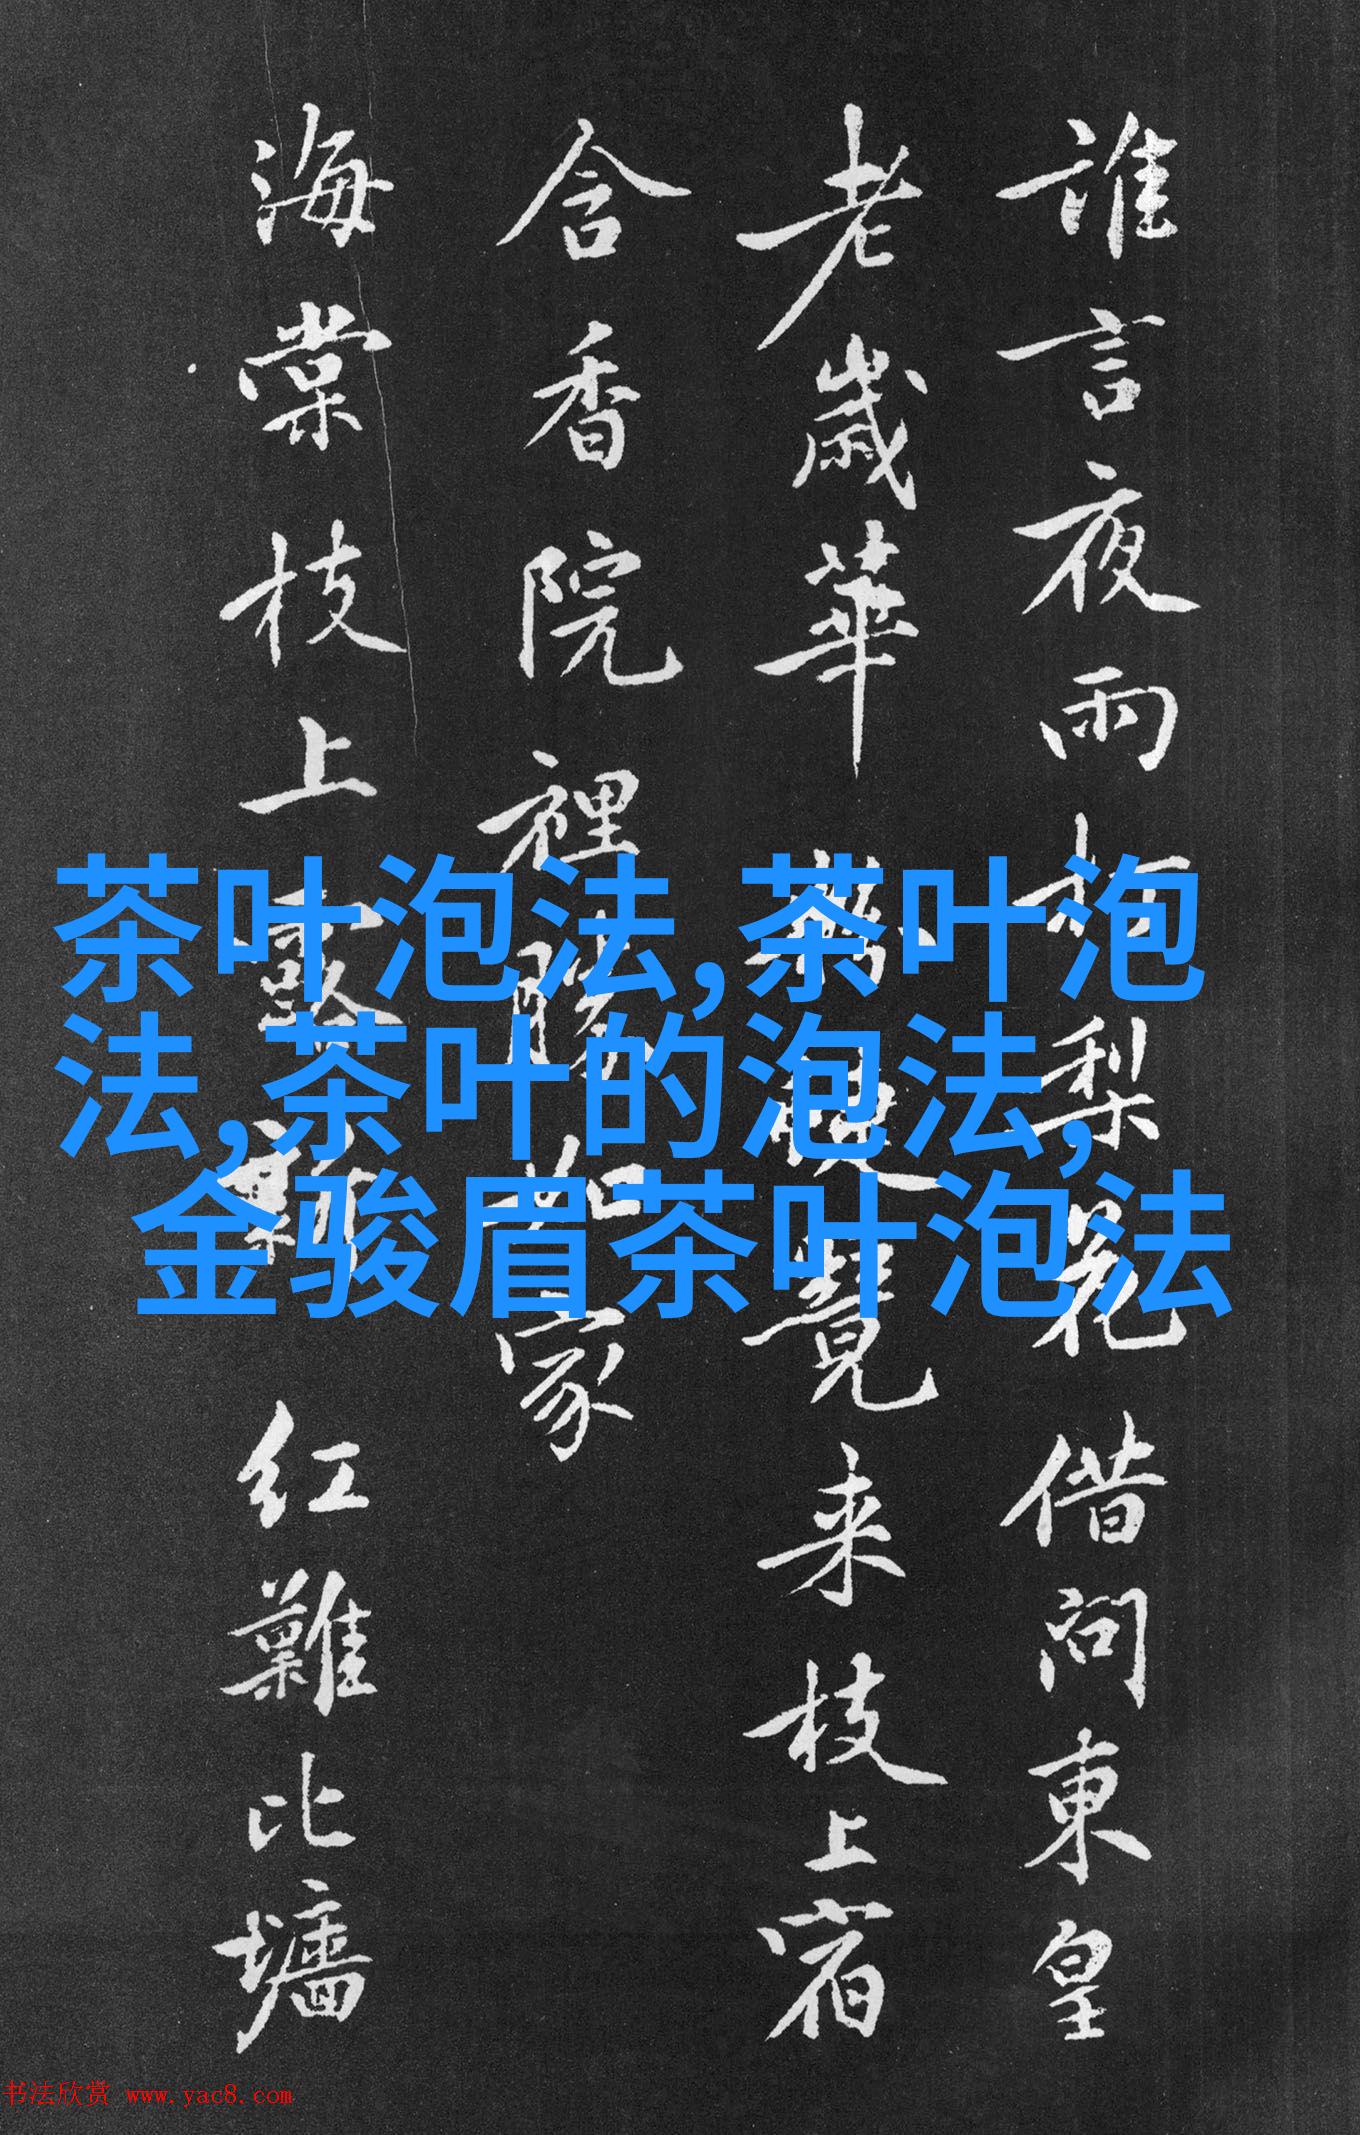 誰言夜雨梨花借問東皇
老歲華覺来枝上宿
含香院裡勝如家
海棠枝上露红難比墻
茶叶泡法,茶叶泡
法,茶叶的泡法,
金骏眉茶叶泡法
书法欣赏 www.yac8.com